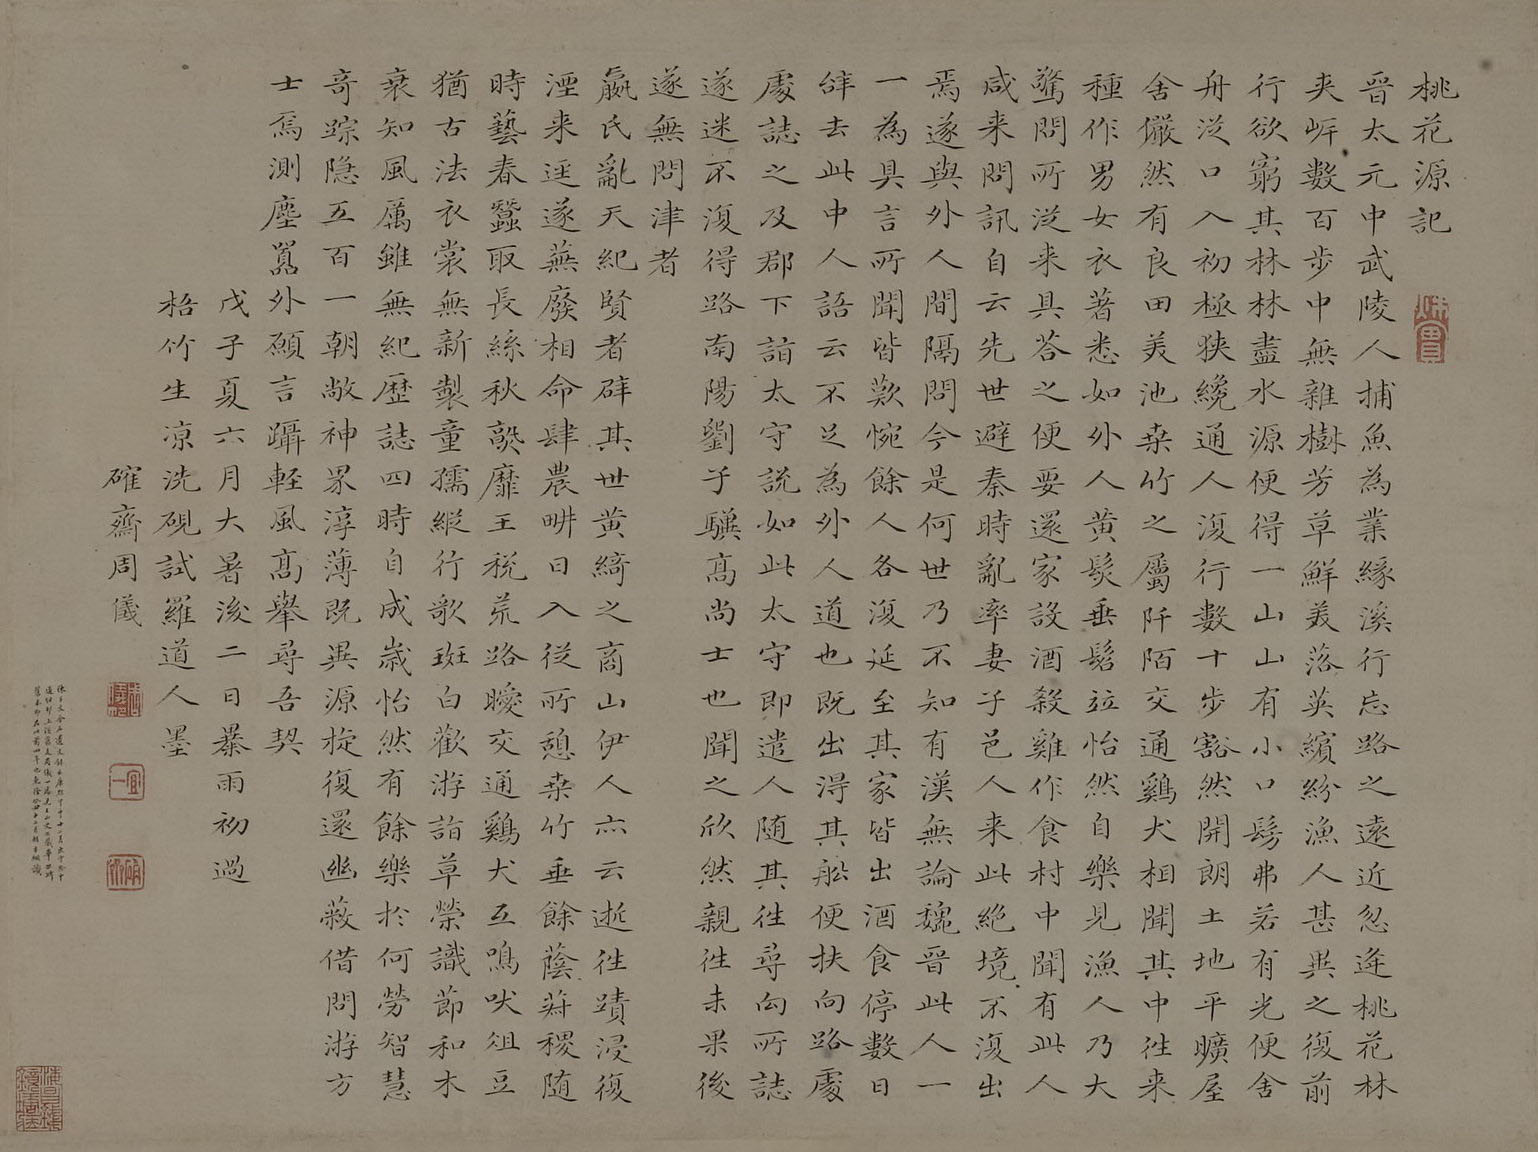 桃花源記
晉太元中武陵人捕魚為業緣溪行忘路之遠近忽逢桃花林
夹岍數百步中無雜樹芳草鮮美落英繽紛漁人甚異之復前
行欲窮其林林盡水源便得一山山有小口髣弗若有光便舍
舟從口入初極狹纔通人復行數十步豁然開朗土地平曠屋
舍儼然有良田美池桑竹之屬阡陌交通鷄犬相聞其中往来
種作男女衣著悉如外人黄髮垂髫並怡然自樂見漁人乃大
驚問所從来具答之便要還家設酒殺雞作食村中聞有此人
咸来問訊自云先世避秦時亂率妻子邑人来此絶境不復出
焉遂與外人間隔問今是何世乃不知有漢無論魏晉此人一
一為具言所聞皆歎惋餘人各復延至其家皆出酒食停數日
辭去此中人語云不足為外人道也既出得其船便扶向路處
處誌之及郡下詣太守説如此太守即遣人随其往尋向所誌
遂迷不復得路南陽劉子驥高尚士也聞之欣然親往未果後
遂無問津者
嬴氏亂天紀賢者辟其世黄綺之商山伊人亦云逝往蹟浸復
湮来逕遂蕪廢相命肆農畊日入從所憩桑竹垂餘蔭菽稷随
時藝春蠶取長絲秋熟靡王税荒路曖交通鷄犬互鳴吠俎豆
猶古法衣裳無新製童孺縱行歌斑白歡游詣草榮識節和木
衰知風厲雖無紀歷誌四時自成歲怡然有餘樂於何勞智慧
奇踪隐五百一朝敞神界淳薄既異源旋復還幽蔽借問游方
士焉測塵囂外願言躡軽風高舉尋吾契
戊子夏六月大暑後二日暴雨初過
梧竹生凉洗硯試羅道人墨
確齋周儀